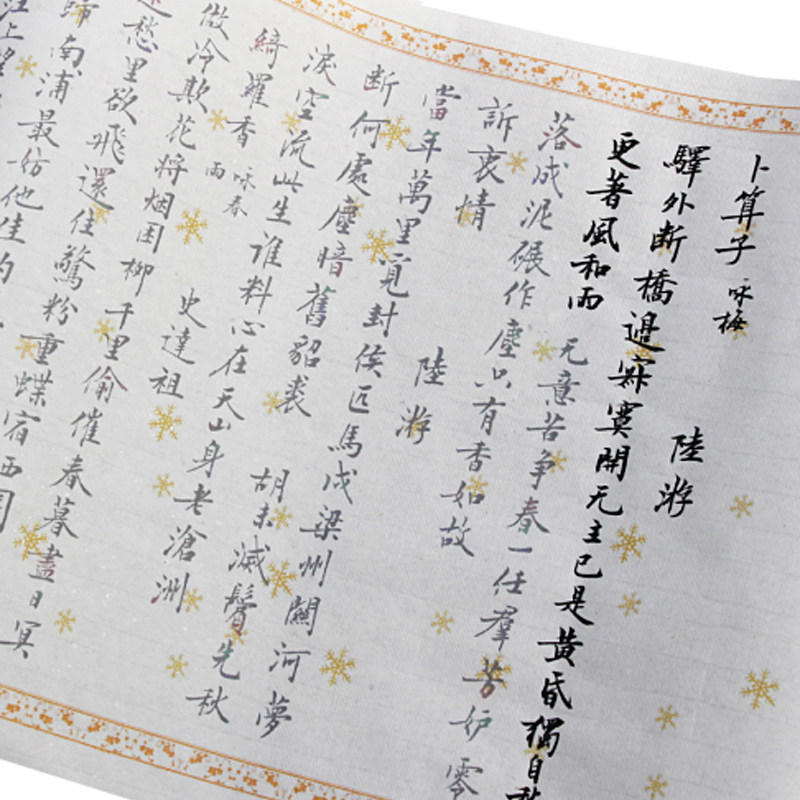 卜算子 咏梅 陸游
驛外断橋邉寂寞開无主已是黄昏獨自愁
更著風和雨 无意苦争春一任羣芳妒零
落成泥碾作塵只有香如故
訴衷情 陸游
當年萬里覓封侯匹馬戍梁州關河夢
断何處塵暗舊貂裘 胡未滅鬢先秋
淚空流此生谁料心在天山身老滄洲
綺羅香 咏春雨 史達祖
做冷欺花将烟困柳千里偷催春暮盡日冥
迷愁里欲飛還住驚粉重蝶宿西園
歸南浦最妨他佳約
江上望